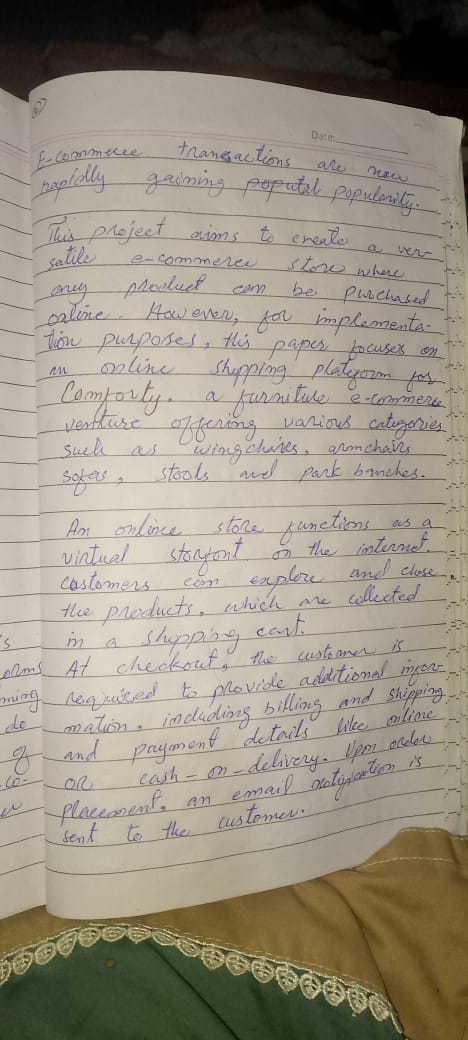 Date:
E-commerce transactions are now
rapidly gaining poputal popularity.
This project aims to create a ver-
satile e-commerce store where
any product can be purchased
online. However, for implementa-
tion purposes, this paper focuses on
an online shopping platform for
Comforty. a furniture e-commerce
venture offering various categories
such as wingchaires, armchairs
sofas, stools and park banches.
An online store functions as a
virtual storfont on the internet.
Customers can explore and close
the products, which are collected
in a shopping cart.
At checkout, the customer is
required to provide additional infor-
mation, including billing and shipping
and payment details like online
OR cash-on-delivery. Upon order
placement, an email notification is
sent to the customer.